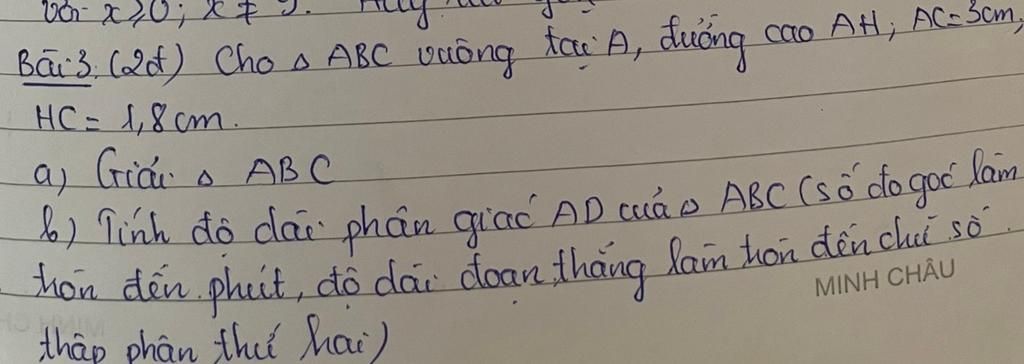 với x ≥ 0; x ≠ 9.
Bài 3. (2đ) Cho △ ABC vuông tại A, đường cao AH; AC = 3cm,
HC = 1,8 cm.
a) Giải △ ABC
b) Tính độ dài phân giác AD của △ ABC (số đo góc làm
tròn đến phút, độ dài đoạn thẳng làm tròn đến chữ số
MINH CHÂU
thập phân thứ hai)